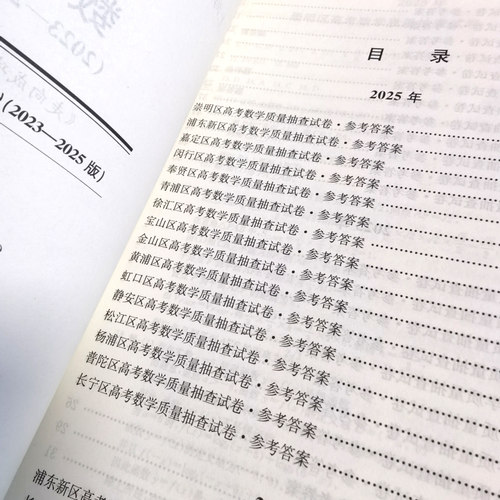 (2023—2025 版)
目 录
2025 年
崇明区高考数学质量抽查试卷·参考答案
浦东新区高考数学质量抽查试卷·参考答案
嘉定区高考数学质量抽查试卷·参考答案
闵行区高考数学质量抽查试卷·参考答案
奉贤区高考数学质量抽查试卷·参考答案
青浦区高考数学质量抽查试卷·参考答案
徐汇区高考数学质量抽查试卷·参考答案
宝山区高考数学质量抽查试卷·参考答案
金山区高考数学质量抽查试卷·参考答案
黄浦区高考数学质量抽查试卷·参考答案
虹口区高考数学质量抽查试卷·参考答案
静安区高考数学质量抽查试卷·参考答案
松江区高考数学质量抽查试卷·参考答案
杨浦区高考数学质量抽查试卷·参考答案
普陀区高考数学质量抽查试卷·参考答案
长宁区高考数学质量抽查试卷·参考答案
浦东新区高考